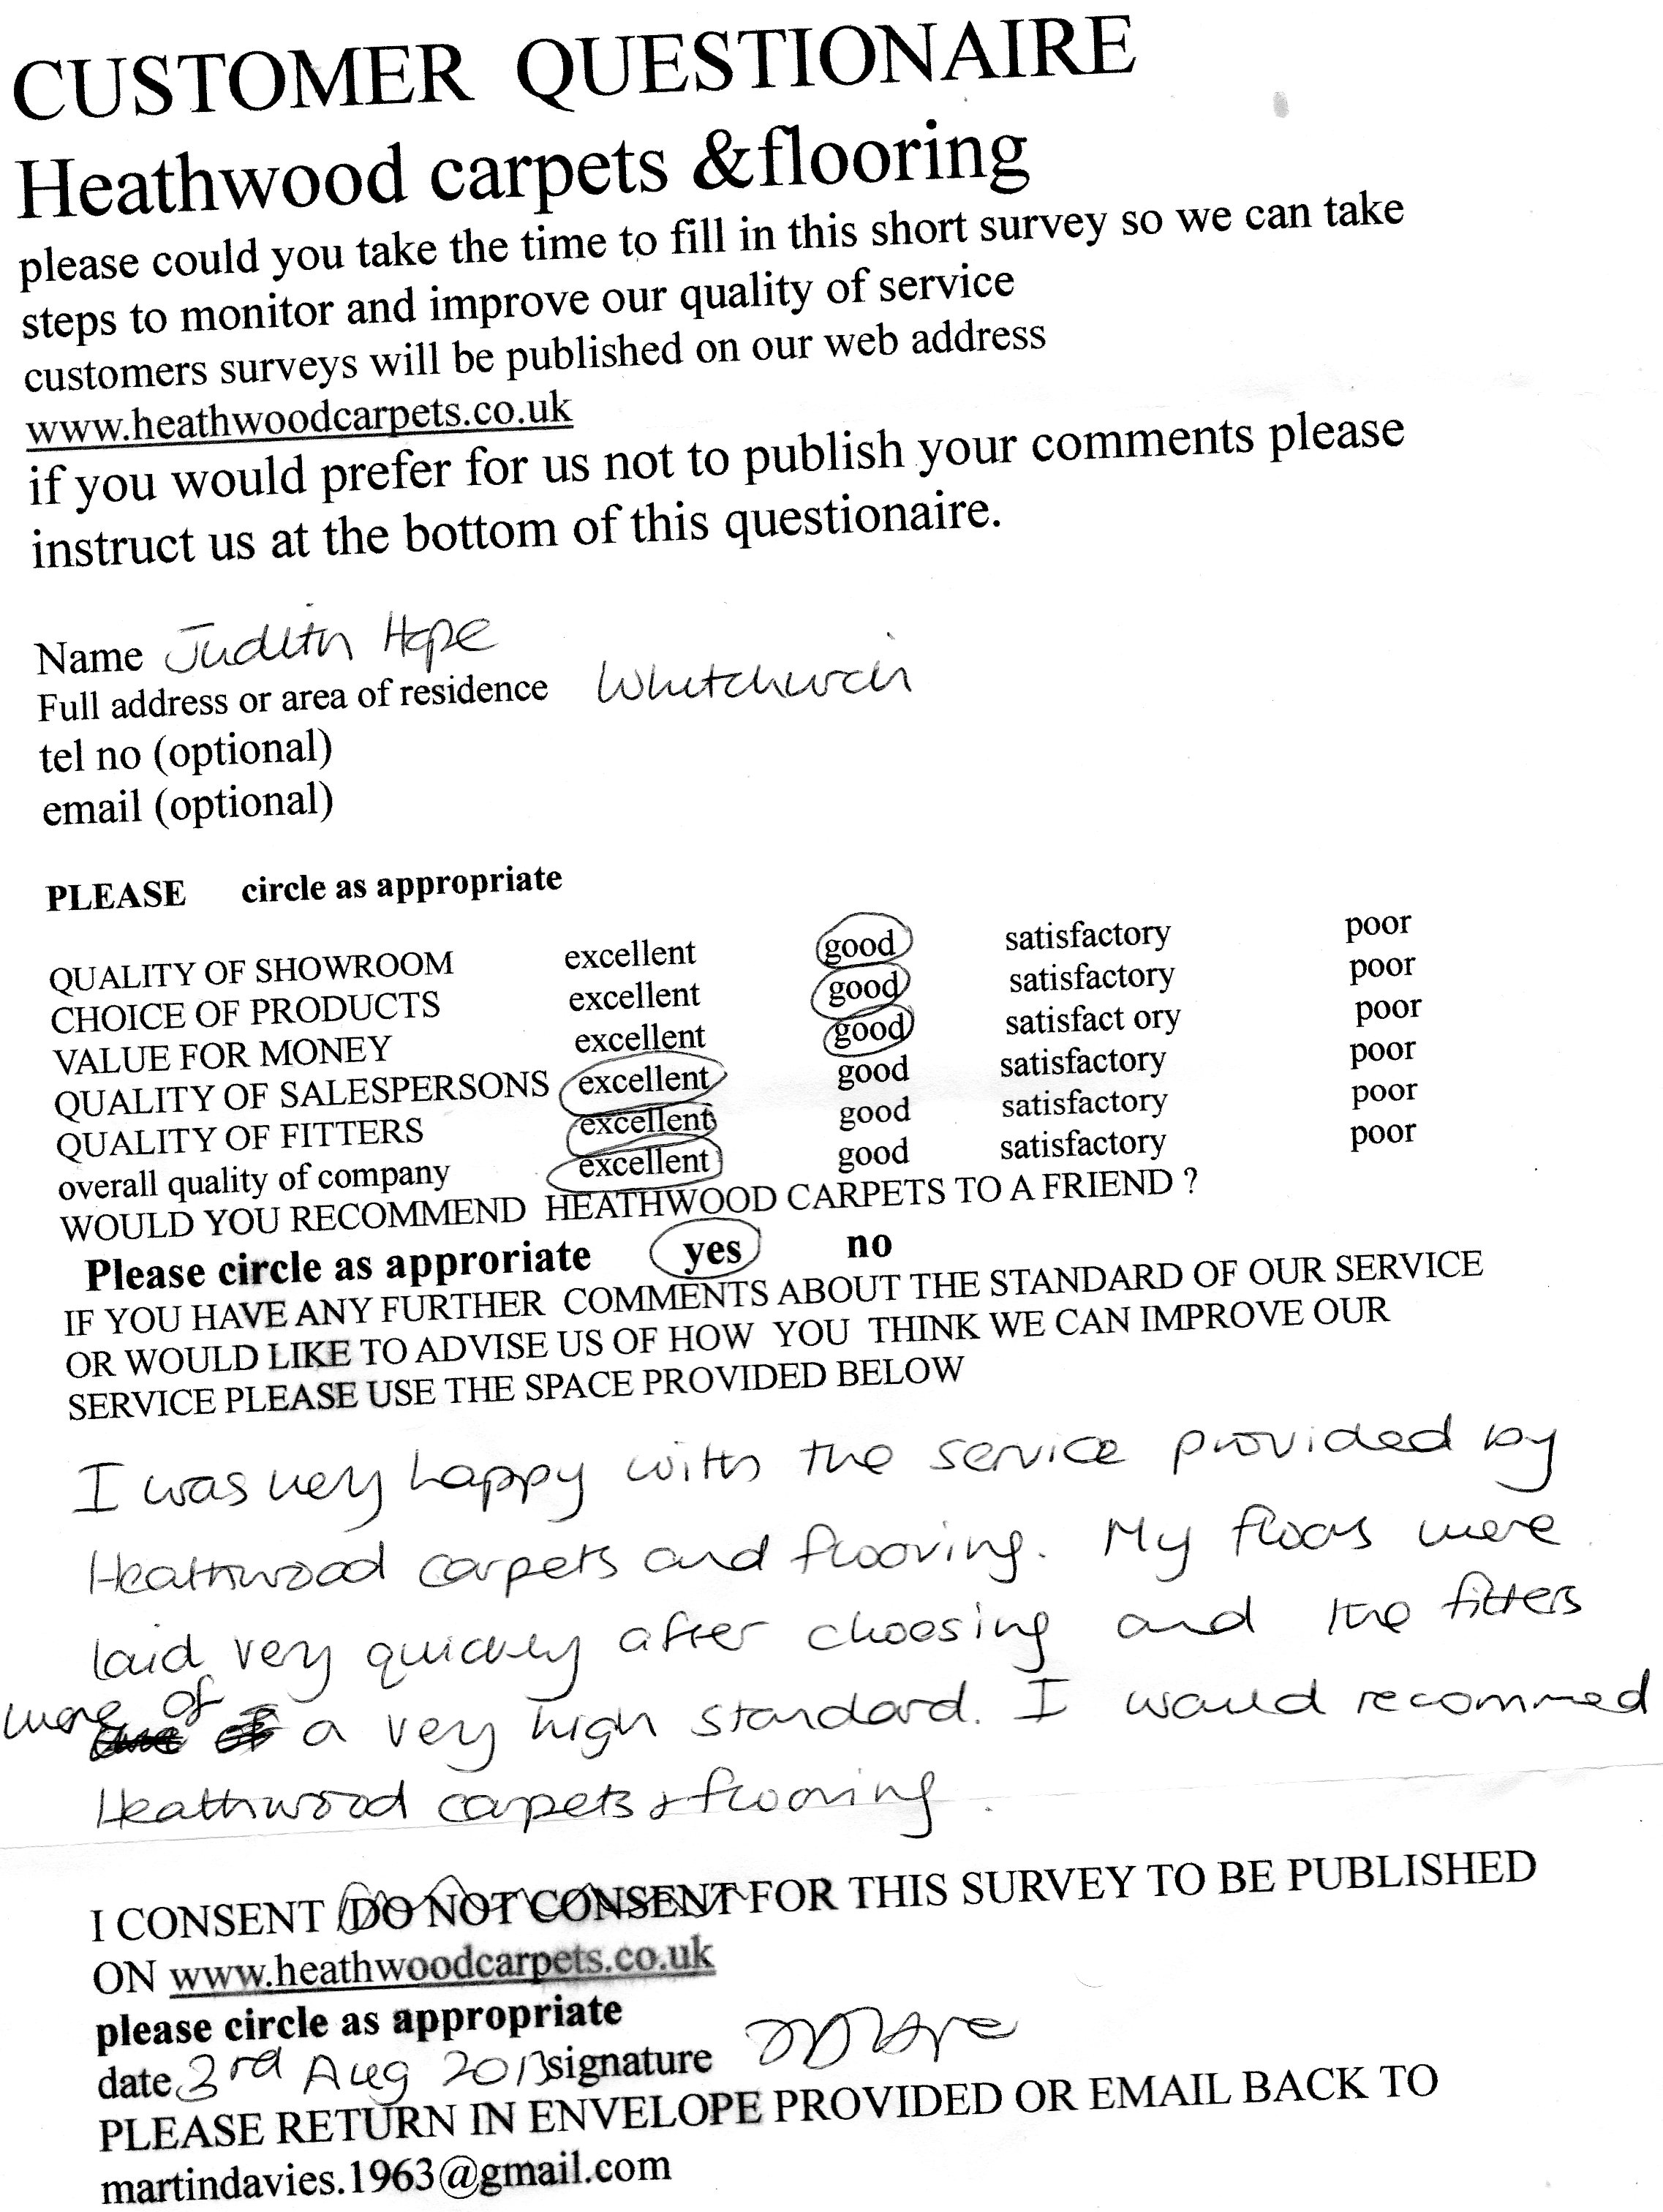 CUSTOMER QUESTIONAIRE
Heathwood carpets &flooring
please could you take the time to fill in this short survey so we can take
steps to monitor and improve our quality of service
customers surveys will be published on our web address
www.heathwoodcarpets.co.uk
if you would prefer for us not to publish your comments please
instruct us at the bottom of this questionaire.
Name Judith Hope
Full address or area of residence Whitchurch
tel no (optional)
email (optional)
PLEASE circle as appropriate
QUALITY OF SHOWROOM excellent good satisfactory poor
CHOICE OF PRODUCTS excellent good satisfactory poor
VALUE FOR MONEY excellent good satisfact ory poor
QUALITY OF SALESPERSONS excellent good satisfactory poor
QUALITY OF FITTERS excellent good satisfactory poor
overall quality of company excellent good satisfactory poor
WOULD YOU RECOMMEND HEATHWOOD CARPETS TO A FRIEND ?
Please circle as approriate yes no
IF YOU HAVE ANY FURTHER COMMENTS ABOUT THE STANDARD OF OUR SERVICE
OR WOULD LIKE TO ADVISE US OF HOW YOU THINK WE CAN IMPROVE OUR
SERVICE PLEASE USE THE SPACE PROVIDED BELOW
I was very happy with the service provided by
Heathwood carpets and flooring. My floors were
laid very quickly after choosing and the fitters
were of a very high standard. I would recommed
Heathwood carpets & flooring.
I CONSENT /DO NOT CONSENT FOR THIS SURVEY TO BE PUBLISHED
ON www.heathwoodcarpets.co.uk
please circle as appropriate
date 3rd Aug 2013 signature
PLEASE RETURN IN ENVELOPE PROVIDED OR EMAIL BACK TO
martindavies.1963@gmail.com